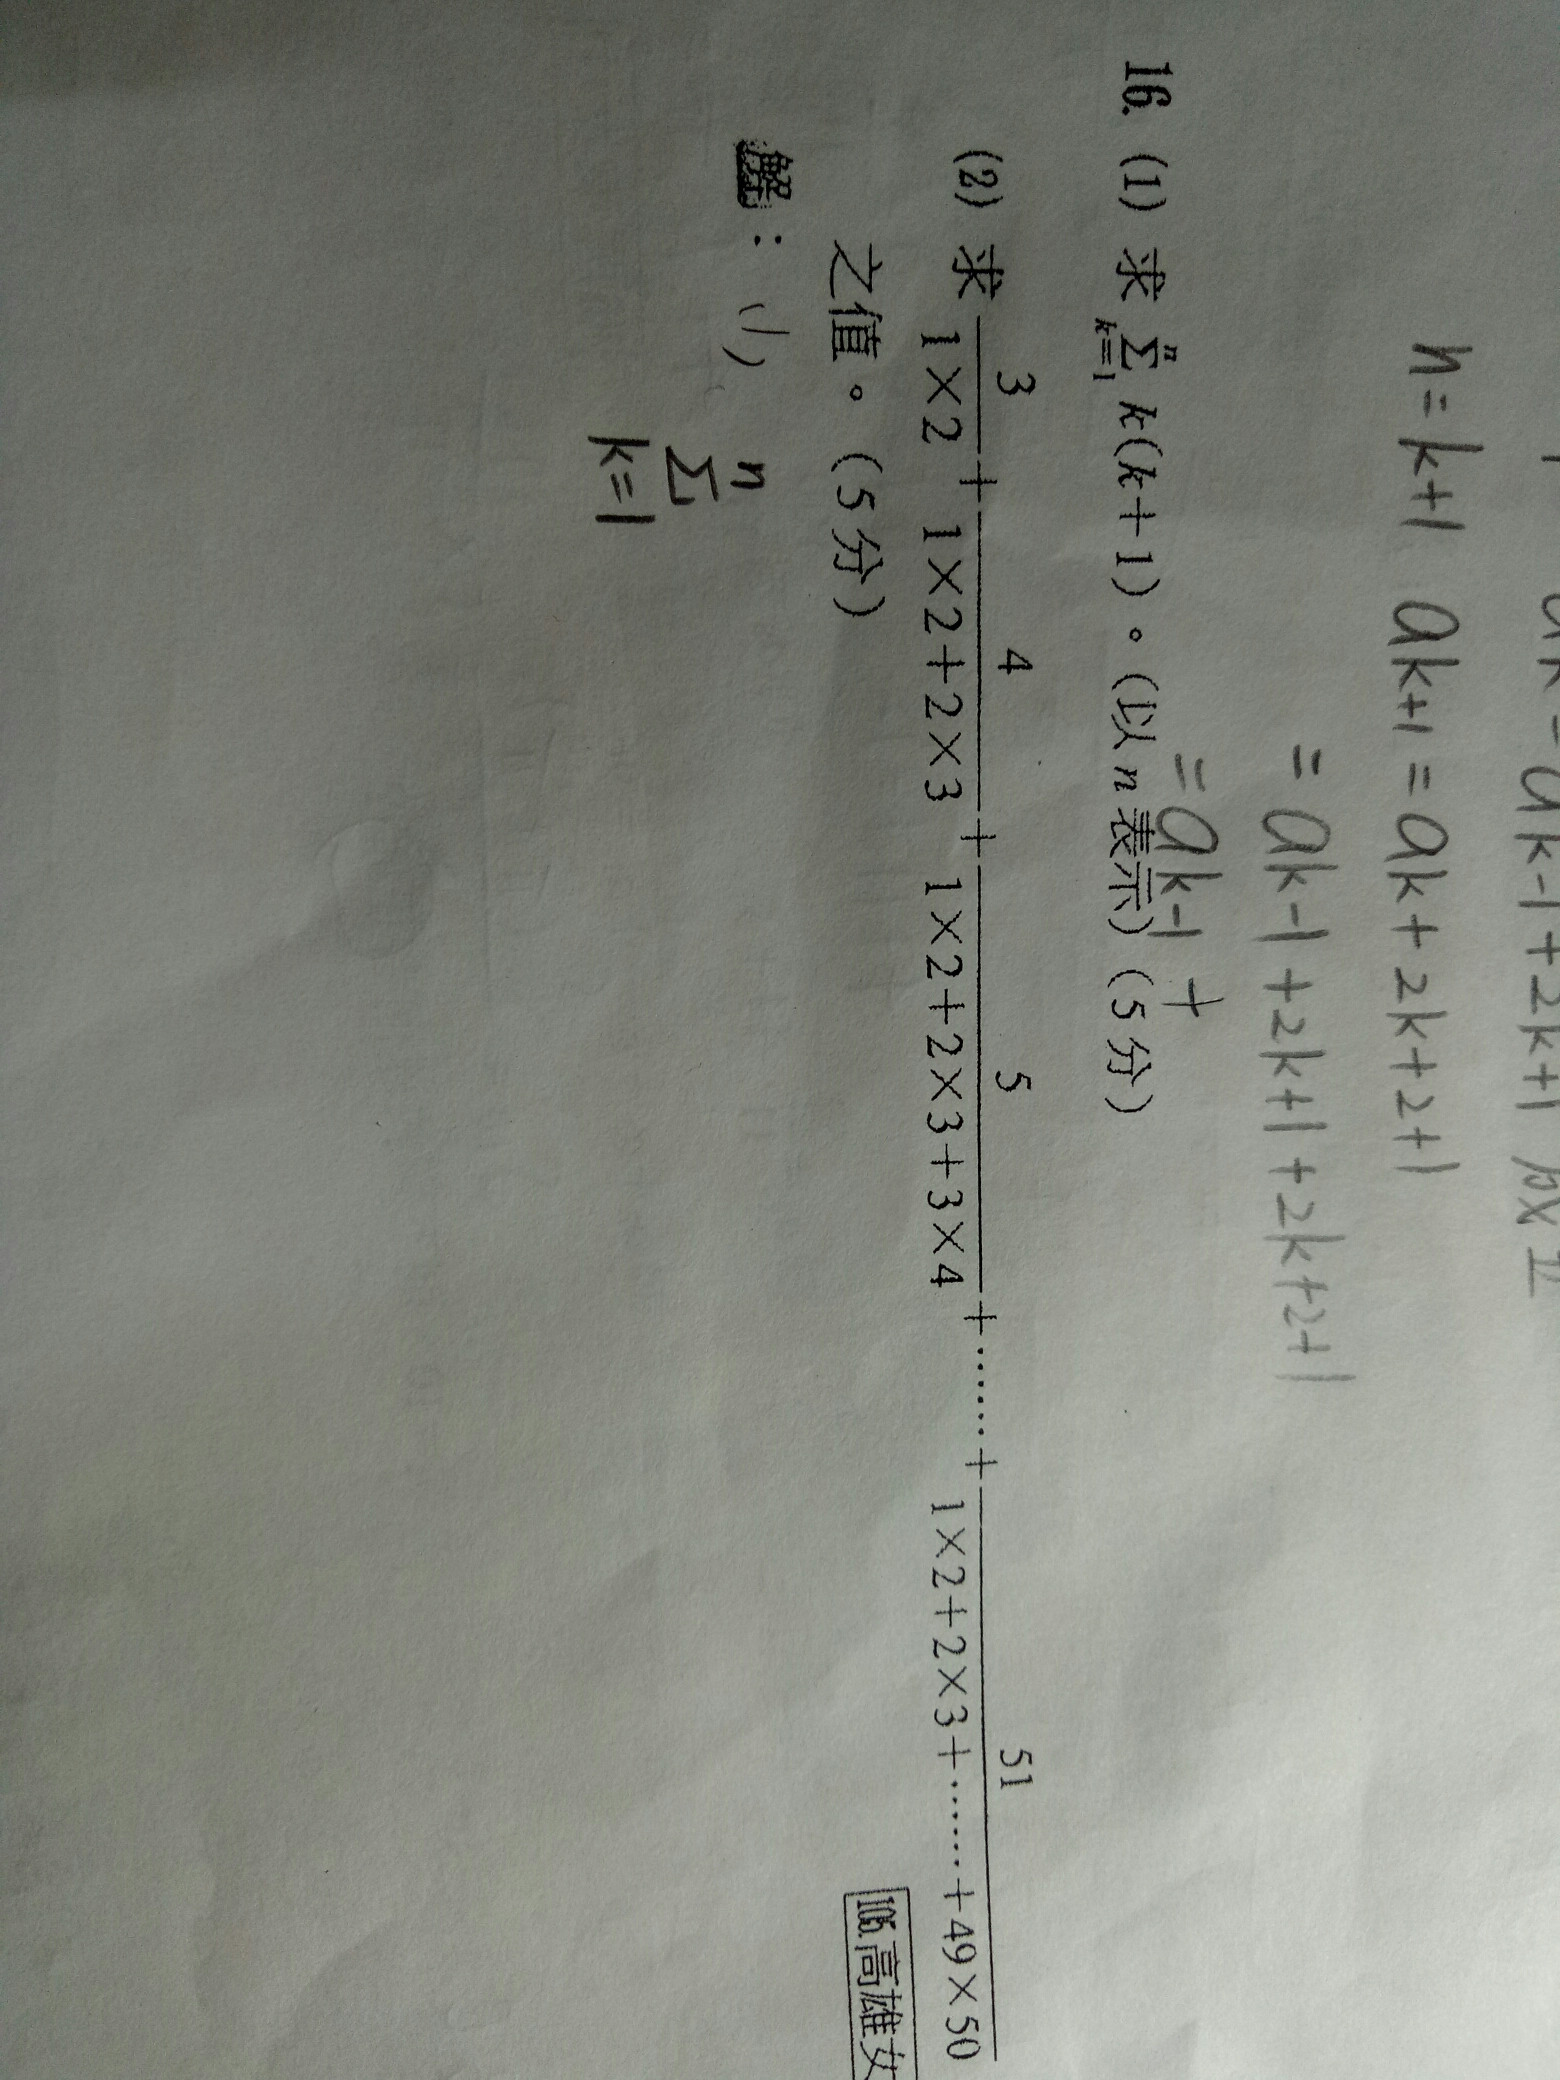 ak = ak-1+2k+1
n=k+1 ak+1 = ak+2k+2+1
= ak-1+2k+1+2k+2+1
= ak-1 +
16. (1) 求 n Σ k=1 k(k+1)。(以n表示)(5分)
(2) 求 3/1×2 + 4/1×2+2×3 + 5/1×2+2×3+3×4 +……+ 51/1×2+2×3+……+49×50
之值。(5分)
105.高雄女
解:(1)
n
Σ
k=1